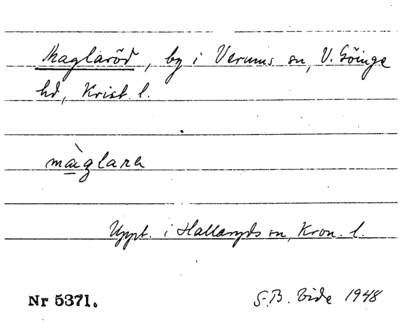 Maglaröd, by i Verums sn, V. Göinge
hd, Krist. l.
màglara
Uppt. i Hallaryds sn, Kron. l.
Nr 5371.
S.B. Vide 1948